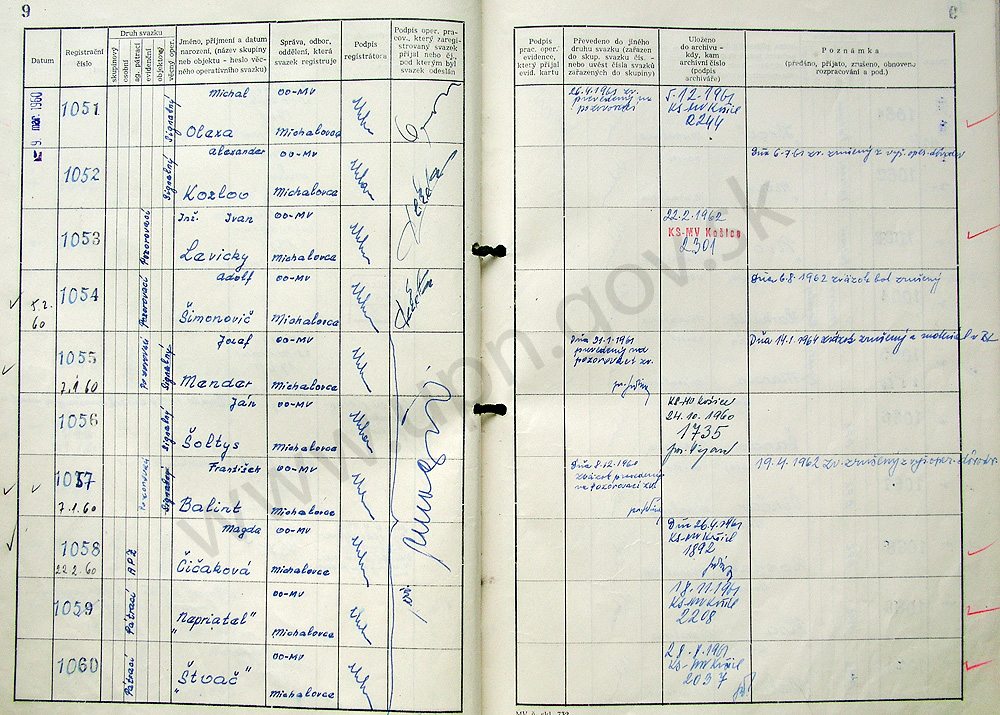 9
Datum
Registrační číslo
Druh svazku
skupinový
osobní
ag. pátrací
evidenční
objektový
věcný oper.
Jméno, příjmení a datum narození, (název skupiny neb objektu - heslo věcného operativního svazku)
Správa, odbor, oddělení, která svazek registruje
Podpis registrátora
Podpis oper. pracov., který zaregistrovaný svazek přijal neb čj., pod kterým byl svazek odeslán
Podpis prac. oper. evidence, který přijal evid. kartu
Převedeno do jiného druhu svazku (zařazen do skup. svazku čís. - nebo uvést čísla svazků zařazených do skupiny)
Uloženo do archivu - kdy, kam archivní číslo (podpis archiváře)
Poznámka
(předáno, přijato, zrušeno, obnoveno rozpracování a pod.)
9. mar. 1960
1051
Signalný
Michal
Olexa
OO-MV
Michalovce
26.4.1961 zv.
prevedený na
pozorovací
5.12.1961
KS-MV Košice
2244
1052
Signalný
Alexander
Kozlov
OO-MV
Michalovce
Dňa 6.7.61 zv. zrušený
1053
Pozorovací
Inž. Ivan
Lavicky
OO-MV
Michalovce
22.2.1962
KS-MV Košice
2301
5.2.
60
1054
Pozorovací
Adolf
Šimonovič
OO-MV
Michalovce
Dňa 6.8.1962 zväzok bol zrušený
1055
7.1.60
Pozorovací
Signalný
Jozef
Mender
OO-MV
Michalovce
Dňa 21.1.1961
prevedený na
pozorovací zv.
Dňa 14.1.1964 zväzok zrušený a
1056
Signalný
Ján
Šoltys
OO-MV
Michalovce
KS-MV Košice
24.10.1960
1735
1057
7.1.60
Pozorovací
Signalný
František
Balint
OO-MV
Michalovce
Dňa 8.12.1960
zväzok prevedený
na Pozorovací zv.
19.4.1962 zv. zrušený
1058
22.2.60
APZ
Magda
Čičaková
OO-MV
Michalovce
Dňa 26.4.1961
KS-MV Košice
1892
1059
Pátrací
„Nepriatel"
OO-MV
Michalovce
18.11.1961
KS-MV Košice
2208
1060
Pátrací
„Štvač"
OO-MV
Michalovce
28.8.1961
KS-MV Košice
2037
www.upn.gov.sk